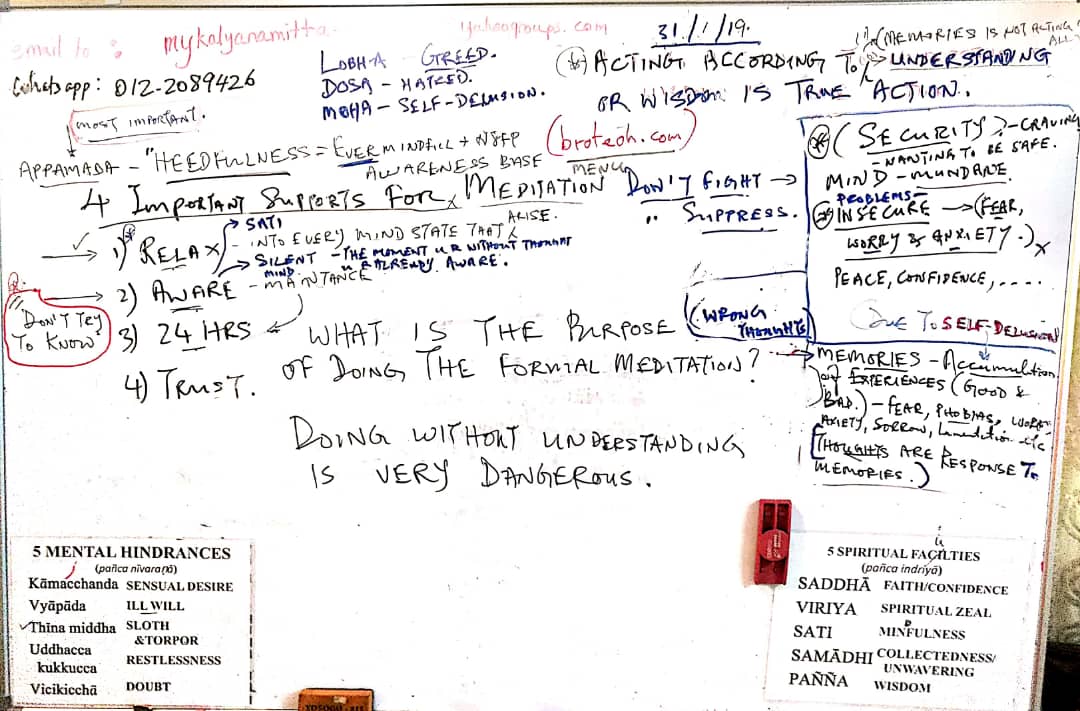 email to : mykalyanamitta yahoogroups.com
Whatsapp : 012-2089426
LOBHA - GREED.
DOSA - HATRED.
MOHA - SELF-DELUSION.
31/1/19.
(MEMORIES IS NOT ACTING AT ALL
ACTING ACCORDING TO UNDERSTANDING
OR WISDOM IS TRUE ACTION.
MOST IMPORTANT.
APPAMADA - "HEEDFULNESS = EVERMINDFUL +
AWARENESS BASE
(broteoh.com)
MENU
4 IMPORTANT SUPPORTS FOR MEDITATION
DON'T FIGHT →
" SUPPRESS.
1) RELAX
SATI
- INTO EVERY MIND STATE THAT ARISE.
SILENT MIND - THE MOMENT U R WITHOUT THOUGHT
U R ALREADY AWARE.
2) AWARE - MAINTANCE
3) 24 HRS
4) TRUST.
"DON'T TRY
TO KNOW"
WHAT IS THE PURPOSE
OF DOING THE FORMAL MEDITATION?
DOING WITHOUT UNDERSTANDING
IS VERY DANGEROUS.
(SECURITY) - CRAVING
- WANTING TO BE SAFE.
MIND - MUNDANE.
PROBLEMS
INSECURE → (FEAR,
WORRY & ANXIETY.)
PEACE, CONFIDENCE, ....
(WRONG
THOUGHTS)
DUE TO SELF-DELUSION
MEMORIES - Accumultion
of EXPERIENCES (GOOD &
BAD.) - FEAR, PHOBIAS, WORRY
AXIETY, SORROW, Lamentation etc
[THOUGHTS ARE RESPONSE TO
MEMORIES.)
5 MENTAL HINDRANCES
(pañca nīvaraṇā)
Kāmacchanda SENSUAL DESIRE
Vyāpāda ILL WILL
Thīna middha SLOTH
&TORPOR
Uddhacca
kukkucca RESTLESSNESS
Vicikicchā DOUBT
5 SPIRITUAL FACILTIES
(pañca indriyā)
SADDHĀ FAITH/CONFIDENCE
VIRIYA SPIRITUAL ZEAL
SATI MINFULNESS
SAMĀDHI COLLECTEDNESS/
UNWAVERING
PAÑÑA WISDOM